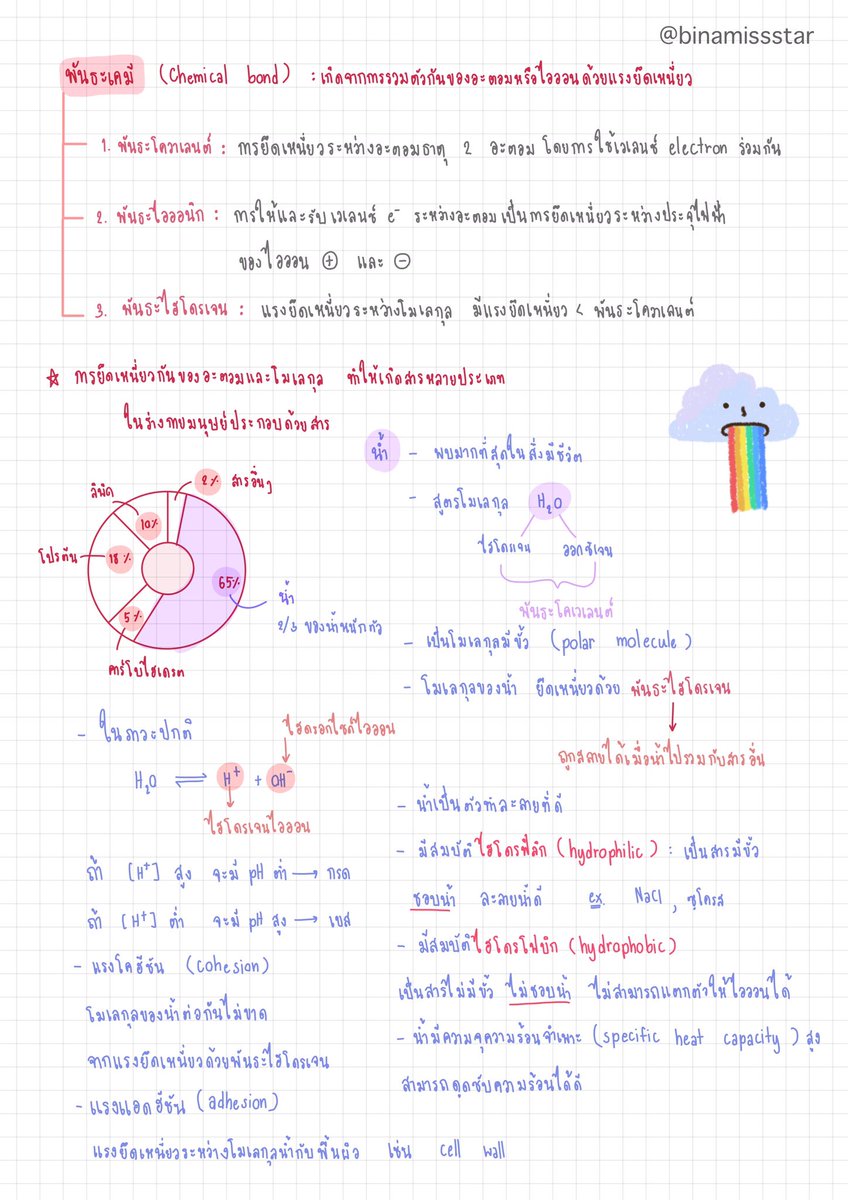 @binamissstar
พันธะเคมี (Chemical bond) : เกิดจากการรวมตัวกันของอะตอมหรือไอออนด้วยแรงยึดเหนี่ยว
1. พันธะโควาเลนต์ : การยึดเหนี่ยวระหว่างอะตอมธาตุ 2 อะตอม โดยการใช้เวเลนซ์ electron ร่วมกัน
2. พันธะไอออนิก : การให้และรับเวเลนซ์ e⁻ ระหว่างอะตอมเป็นการยึดเหนี่ยวระหว่างประจุไฟฟ้า
ของไอออน ⊕ และ ⊖
3. พันธะไฮโดรเจน : แรงยึดเหนี่ยวระหว่างโมเลกุล มีแรงยึดเหนี่ยว < พันธะโควาเลนต์
☆ การยึดเหนี่ยวกันของอะตอมและโมเลกุล ทำให้เกิดสารหลายประเภท
ในร่างกายมนุษย์ประกอบด้วยสาร
2% สารอื่นๆ
ลิพิด
10%
โปรตีน
18%
65%
5%
น้ำ
2/3 ของน้ำหนักตัว
คาร์โบไฮเดรต
- ในภาวะปกติ
ไฮดรอกไซด์ไอออน
H₂O ⇌ H⁺ + OH⁻
ไฮโดรเจนไอออน
ถ้า [H⁺] สูง จะมี pH ต่ำ → กรด
ถ้า [H⁺] ต่ำ จะมี pH สูง → เบส
- แรงโคฮีชัน (cohesion)
โมเลกุลของน้ำต่อกันไม่ขาด
จากแรงยึดเหนี่ยวด้วยพันธะไฮโดรเจน
- แรงแอดฮีชัน (adhesion)
แรงยึดเหนี่ยวระหว่างโมเลกุลน้ำกับพื้นผิว เช่น cell wall
น้ำ - พบมากที่สุดในสิ่งมีชีวิต
- สูตรโมเลกุล H₂O
ไฮโดเเจน ออกซิเจน
พันธะโคเวเลนต์
- เป็นโมเลกุลมีขั้ว (polar molecule)
- โมเลกุลของน้ำ ยึดเหนี่ยวด้วย พันธะไฮโดรเจน
ถูกสลายได้เมื่อน้ำไปรวมกับสารอื่น
- น้ำเป็นตัวทำละลายที่ดี
- มีสมบัติไฮโดรฟิลิก (hydrophilic) : เป็นสารมีขั้ว
ชอบน้ำ ละลายน้ำดี ex. NaCl, ซูโครส
- มีสมบัติไฮโดรโฟบิก (hydrophobic)
เป็นสารไม่มีขั้ว ไม่ชอบน้ำ ไม่สามารถแตกตัวให้ไอออนได้
- น้ำมีความจุความร้อนจำเพาะ (specific heat capacity) สูง
สามารถดูดซับความร้อนได้ดี